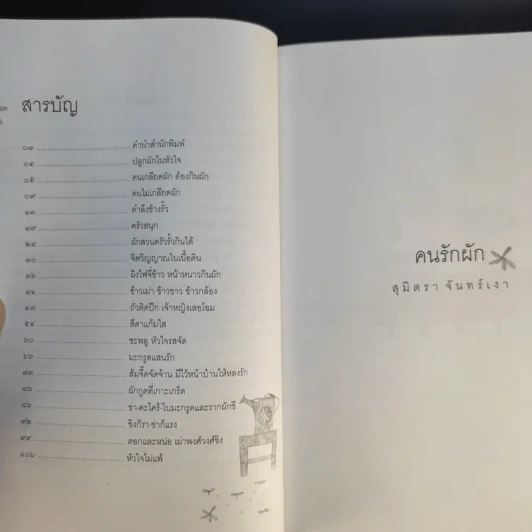 สารบัญ
๐๓ คำนำสำนักพิมพ์
๐๔ ปลูกผักในหัวใจ
๐๕ คนเกลียดผัก ต้องกินผัก
๐๙ คนไม่เกลียดผัก
๑๓ ตำลึงข้างรั้ว
๑๙ ครัวสนุก
๒๕ ผักสวนครัวรั้วกินได้
๓๐ จิตวิญญาณในเนื้อดิน
๓๖ ผิงไฟจี่ข้าว หน้าหนาวกินผัก
๔๑ ข้าวเม่า ข้าวขาว ข้าวกล้อง
๔๗ ถั่วติดปีก เจ้าหญิงเลอโฉม
๕๔ สีดาแก้มใส
๖๐ ชะพลู หัวใจรสจัด
๖๖ มะกรูดแสนรัก
๗๓ ส้มจี๊ดจัดจ้าน มีไว้หน้าบ้านให้หลงรัก
๘๐ ผักกูดที่เกาะเกร็ด
๘๖ ข่า-ตะไคร้-ใบมะกรูดและรากผักชี
๙๒ ขิงก็รา-ข่าก็แรง
๙๙ ดอกและหน่อ เผ่าพงศ์วงศ์ขิง
๑๐๖ หัวใจไม่แพ้
คนรักผัก
สุมิตรา จันทร์เงา